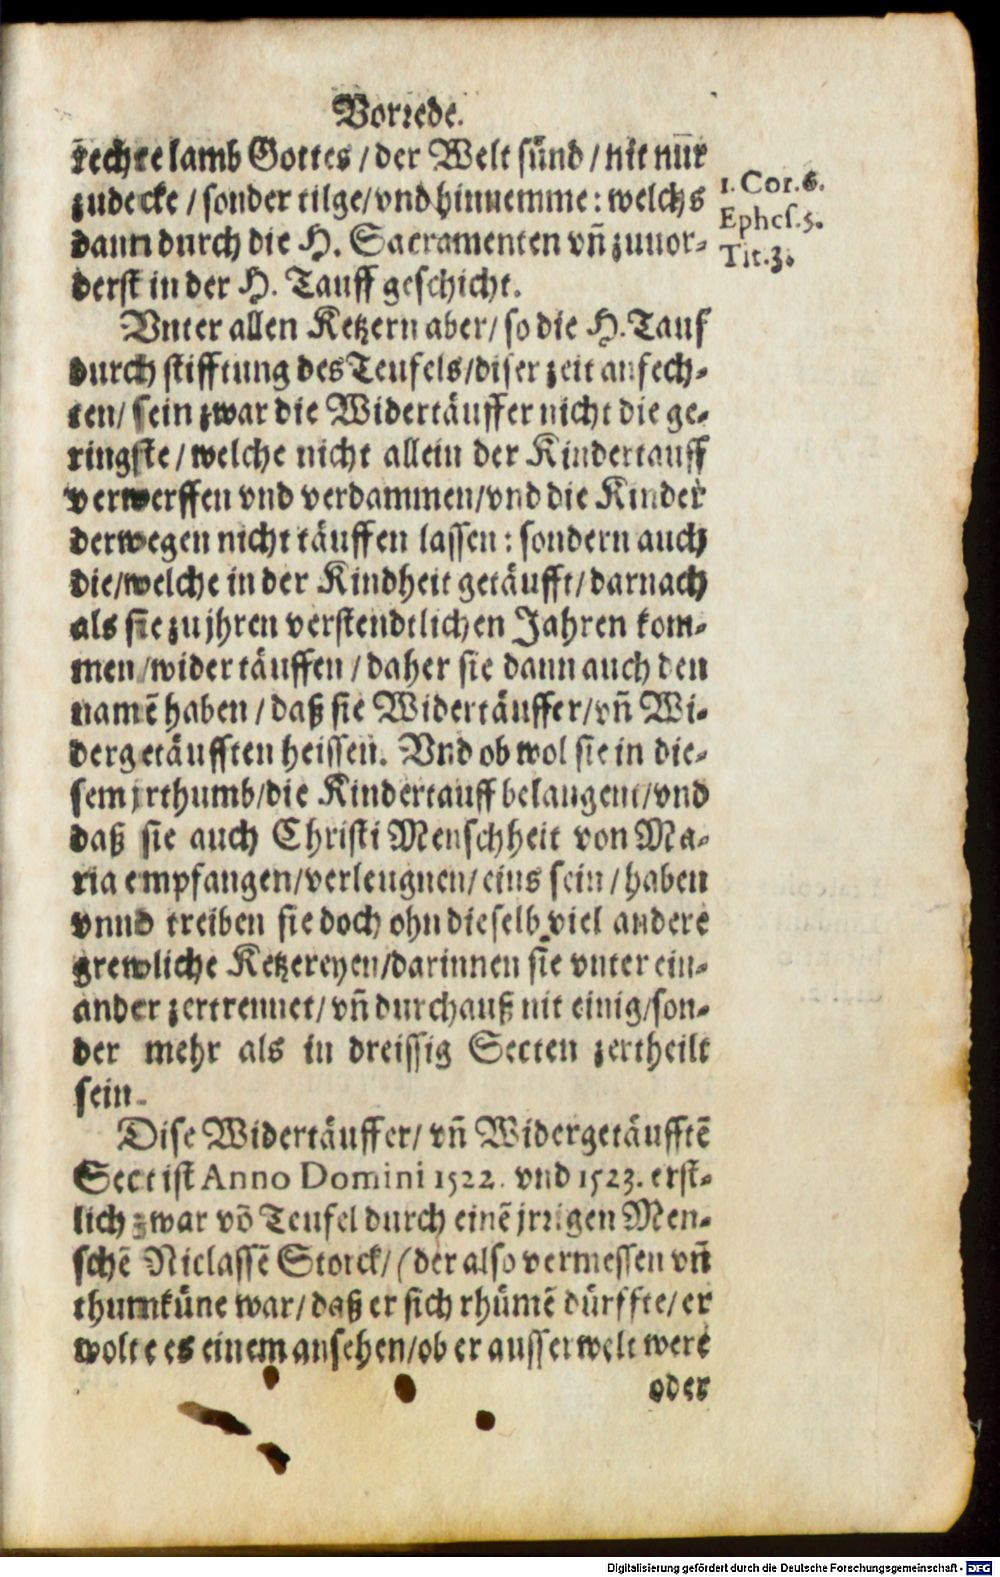 Vorrede.
rechte lamb Gottes / der Welt sünd / nit nur
zudecke / sonder tilge / vnd hinnemme: welchs
dann durch die H. Sacramenten vñ zuuor-
derst in der H. Tauff geschicht.
1. Cor. 6.
Ephes. 5.
Tit. 3.
Vnter allen Ketzern aber / so die H. Tauf
durch stifftung des Teufels / diser zeit anfech-
ten / sein zwar die Widertäuffer nicht die ge-
ringste / welche nicht allein der Kindertauff
verwerffen vnd verdammen / vnd die Kinder
derwegen nicht täuffen lassen: sondern auch
die / welche in der Kindheit getäufft / darnach
als sie zu jhren verstendtlichen Jahren kom-
men / wider täuffen / daher sie dann auch den
namẽ haben / daß sie Widertäuffer / vñ Wi-
dergetäufften heissen. Vnd ob wol sie in die-
sem jrthumb / die Kindertauff belangent / vnd
daß sie auch Christi Menschheit von Ma-
ria empfangen / verleugnen / eins sein / haben
vnnd treiben sie doch ohn dieselb viel andere
grewliche Ketzereyen / darinnen sie vnter ein-
ander zertrennet / vñ durchauß nit einig / son-
der mehr als in dreissig Secten zertheilt
sein.
Dise Widertäuffer / vñ Widergetäufftẽ
Sect ist Anno Domini 1522. vnd 1523. erst-
lich zwar võ Teufel durch einẽ jrrigen Men-
schẽ Niclassẽ Storck / (der also vermessen vñ
thumküne war / daß er sich rhümẽ dürffte / er
wolte es einem ansehen / ob er ausserwelt were
oder
Digitalisierung gefördert durch die Deutsche Forschungsgemeinschaft - DFG